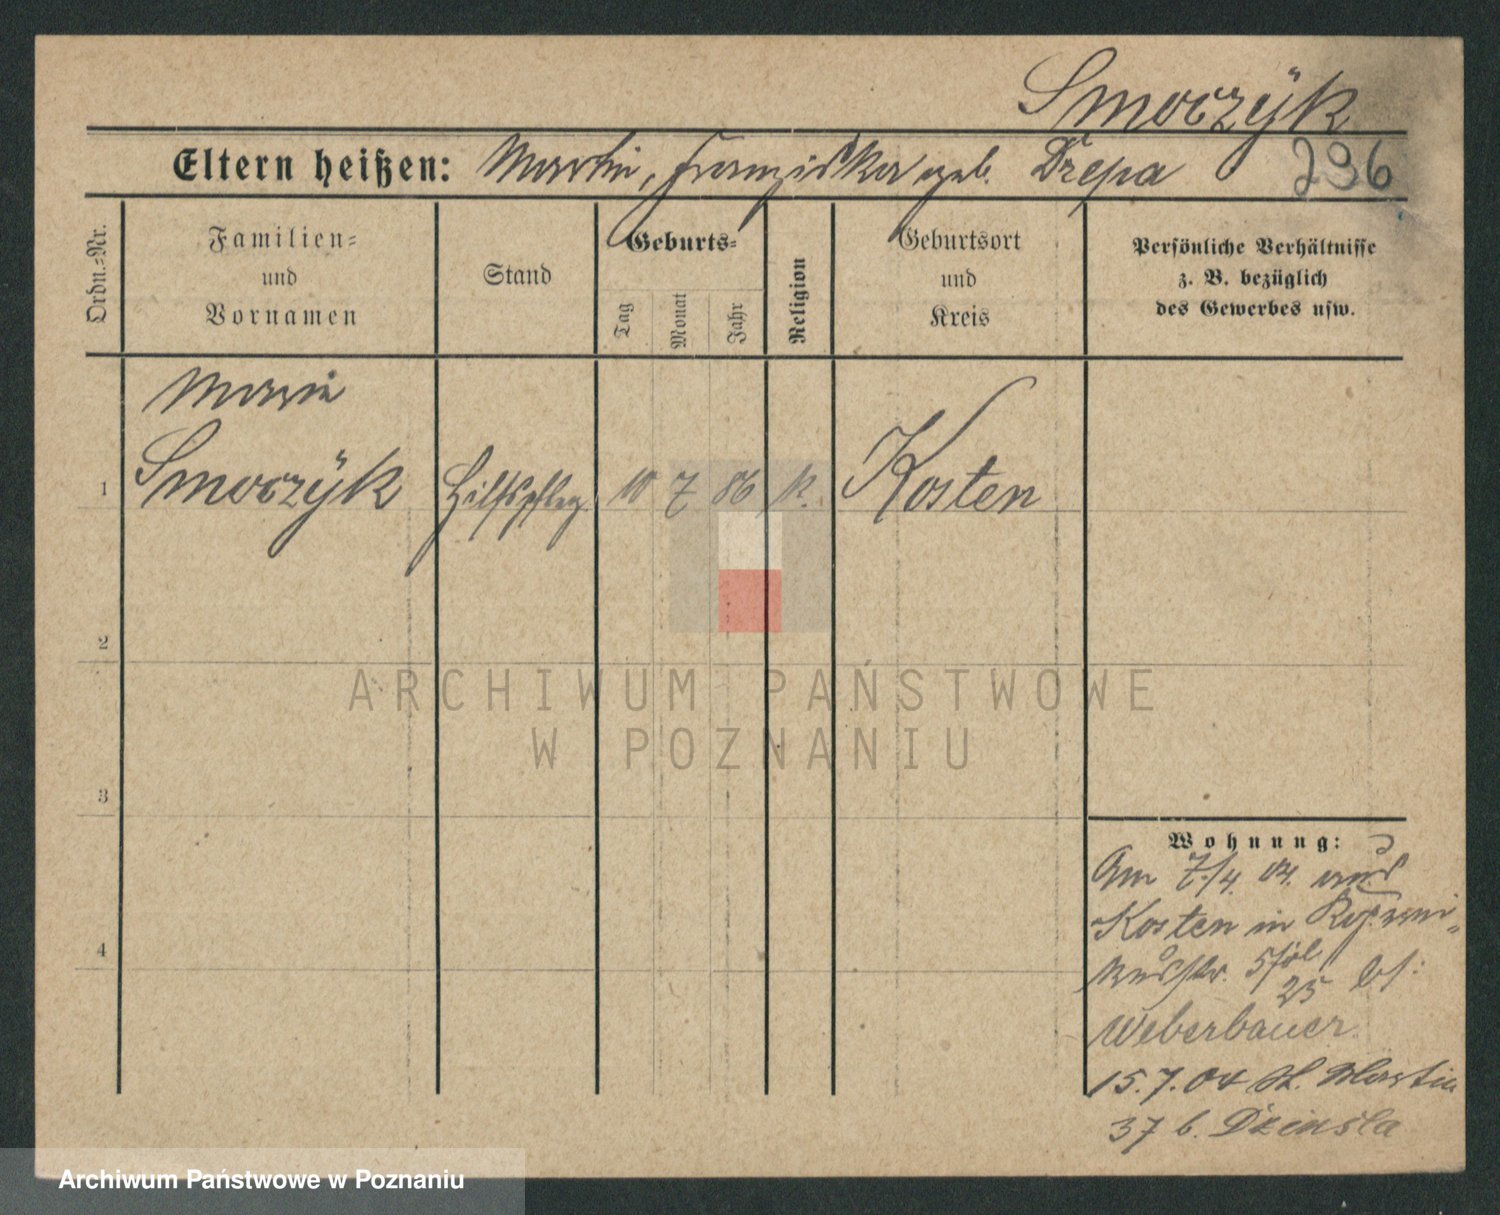 Smoczÿk
Eltern heißen: Martin, Franziska geb. Drzepa
296
Ordn.-Nr.
Familien-
und
Vornamen
Stand
Geburts-
Tag
Monat
Jahr
Religion
Geburtsort
und
Kreis
Persönliche Verhältnisse
z. B. bezüglich
des Gewerbes usw.
Marie
1 Smoczÿk Hilfspfleg. 10 7 86 k. Kosten
2
ARCHIWUM PAŃSTWOWE
W POZNANIU
3
Wohnung:
Am 7./4. 04. aus
Kosten in
25 bei:
Weberbauer
15.7.04 St. Martin
37 b. Dzinsla
4
Archiwum Państwowe w Poznaniu